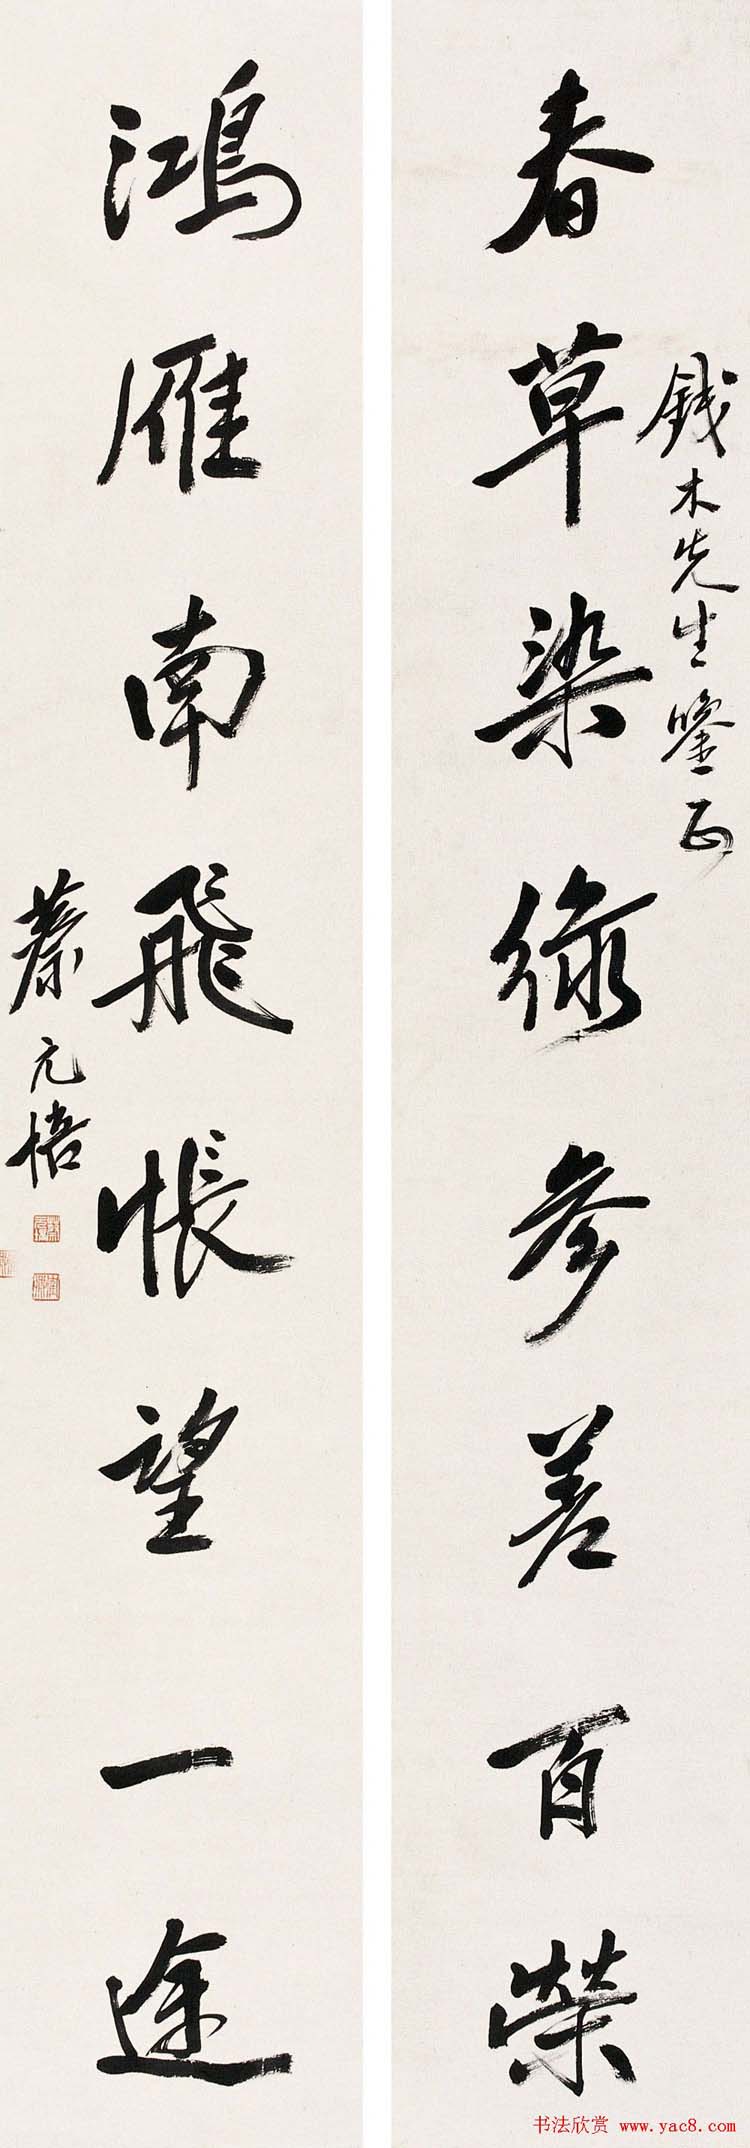 錢木先生鑒正
春草染綠參差百榮
鴻雁南飛悵望一途
蔡元培
书法欣赏 www.yac8.com